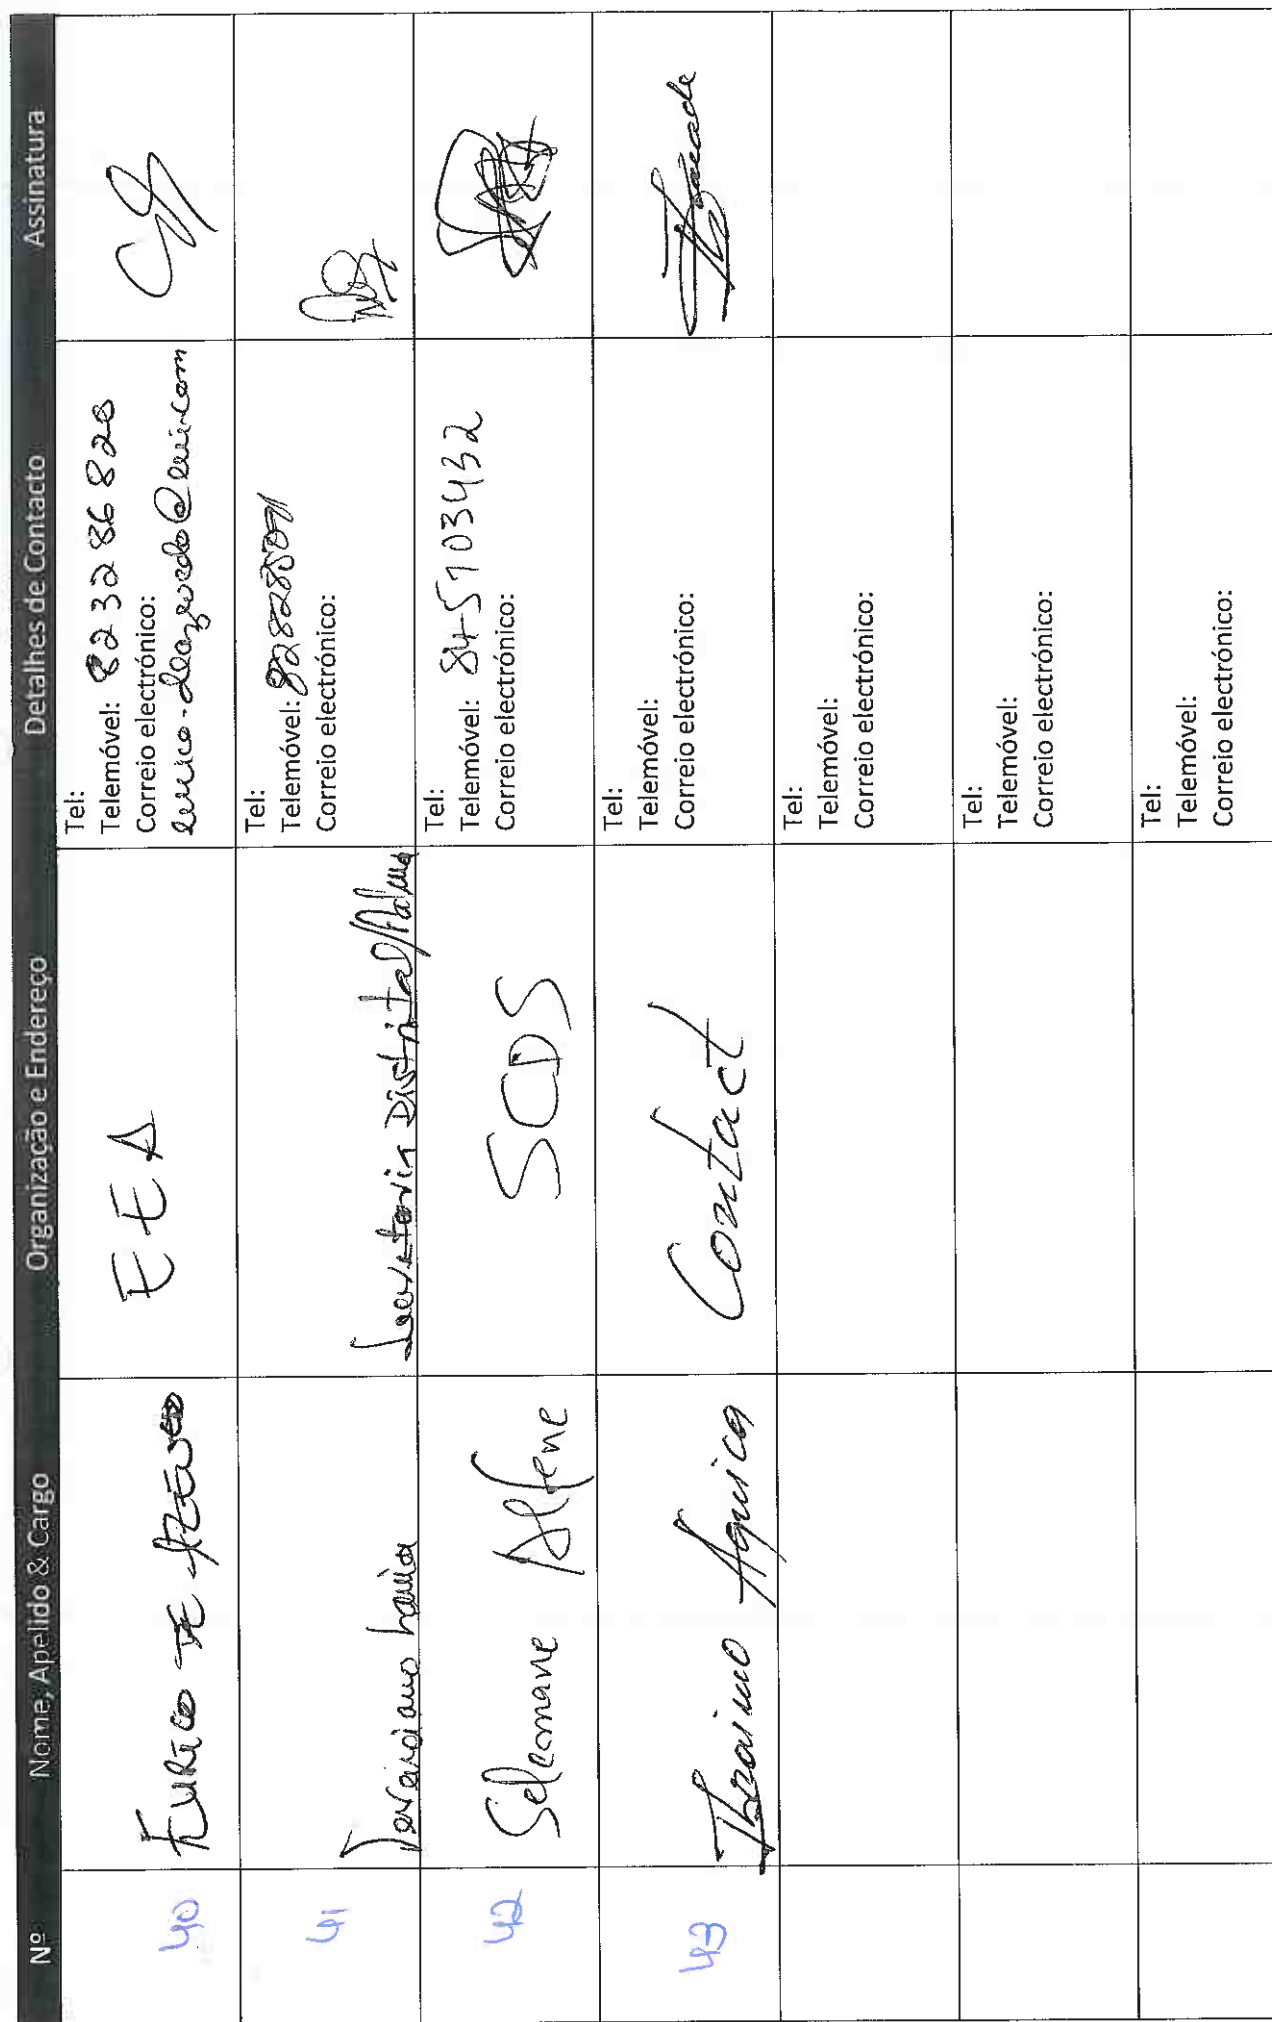 Nº Nome, Apelido & Cargo Organização e Endereço Detalhes de Contacto Assinatura
40 EURICO DE AZEVEDO EEA
Tel:
Telemóvel: 823286820
Correio electrónico:
41 Distrital/Palma
Tel:
Telemóvel:
Correio electrónico:
42 Selemane Alfene SCDS
Tel:
Telemóvel: 845703432
Correio electrónico:
43 Ibraimo Contact
Tel:
Telemóvel:
Correio electrónico:
Tel:
Telemóvel:
Correio electrónico:
Tel:
Telemóvel:
Correio electrónico:
Tel:
Telemóvel:
Correio electrónico: